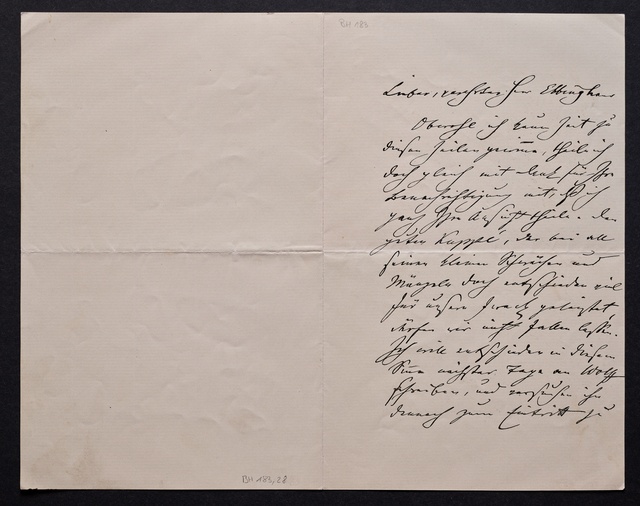 BH 183
Lieber, verehrter Herr Ebbinghaus
Obwohl ich kaum Zeit zu
diesen Zeilen gewinne, theile ich
doch gleich mit Dank für Ihre
Benachrichtigung mit, daß ich
ganz Ihre Ansicht theile. Den
guten Kappel, der bei all
seinen kleinen Schwächen und
Mängeln doch entschieden viel
für unsere Zwecke geleistet,
dürfen wir nicht fallen lassen.
Ich will entschieden in diesem
Sinn nächster Tage an Wolff
schreiben, und versuchen ihn
dennoch zum Eintritt zu
BH 183,28